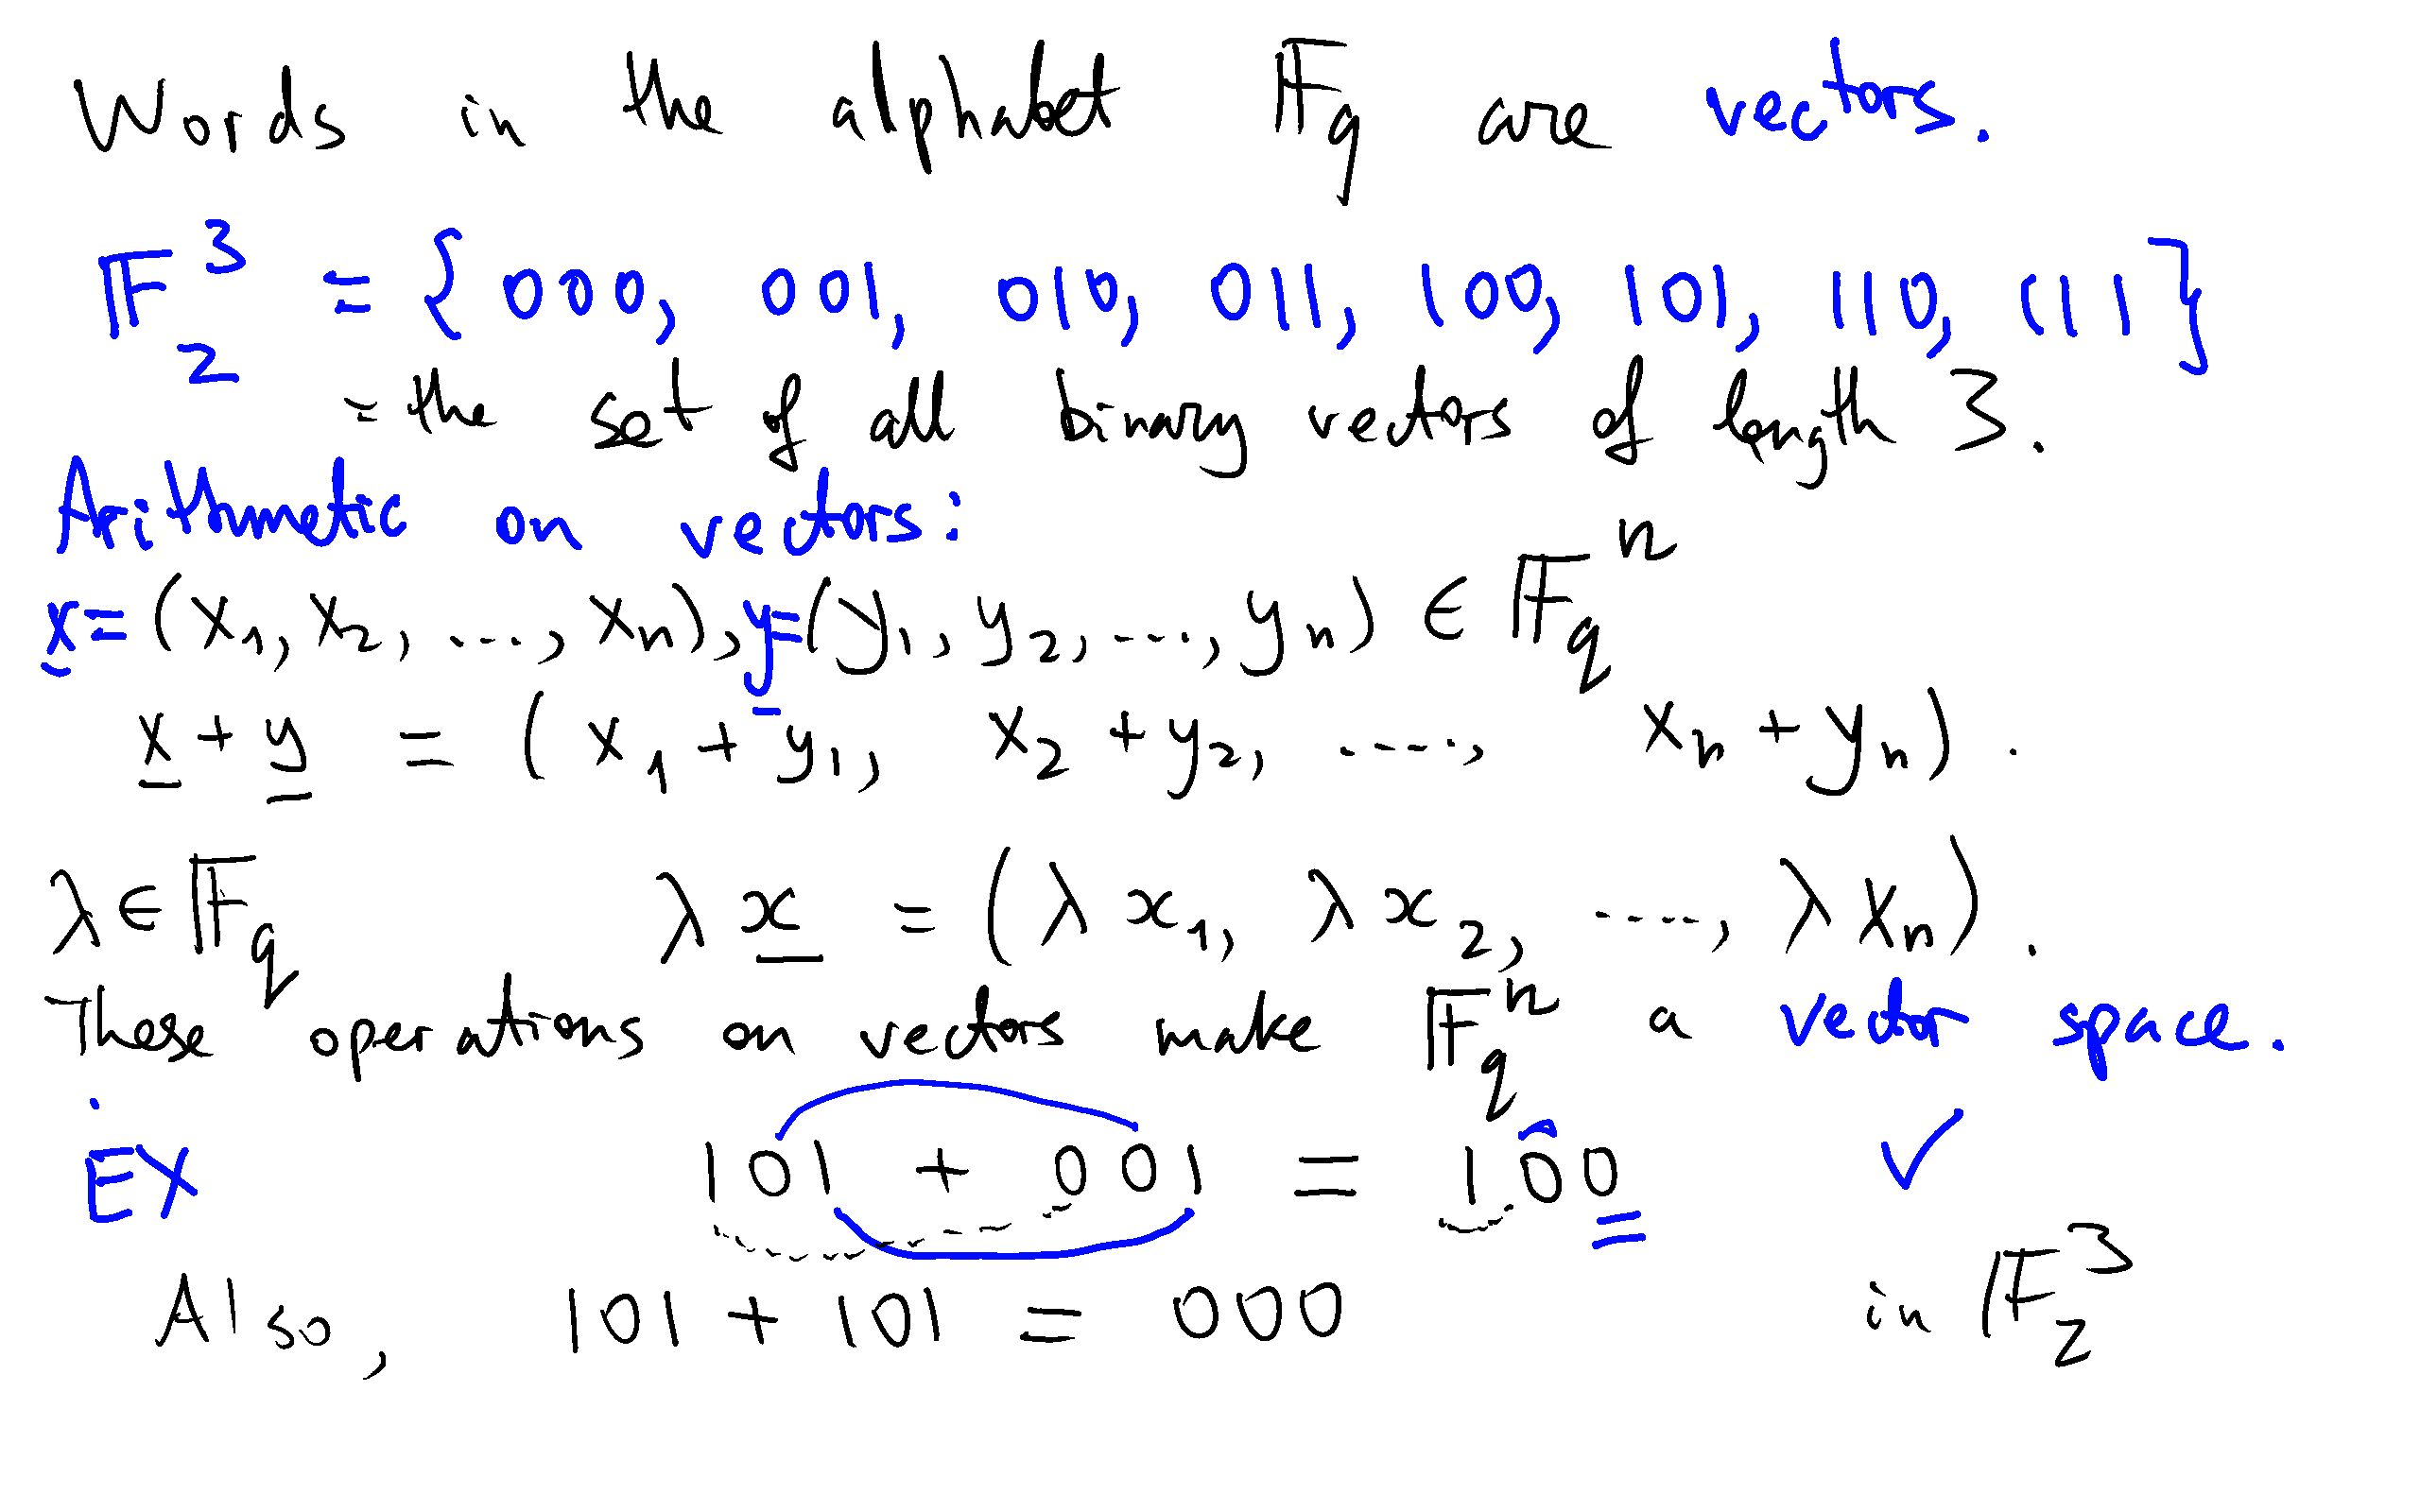 Words in the alphabet 𝔽_q are vectors.
𝔽_2^3 = { 000, 001, 010, 011, 100, 101, 110, 111 }
= the set of all binary vectors of length 3.
Arithmetic on vectors:
x̲ = (x_1, x_2, ...., x_n), y̲ = (y_1, y_2, ...., y_n) ∈ 𝔽_q^n
x̲ + y̲ = (x_1 + y_1, x_2 + y_2, ...., x_n + y_n).
λ ∈ 𝔽_q λ x̲ = (λ x_1, λ x_2, ...., λ x_n).
These operations on vectors make 𝔽_q^n a vector space.
EX 101 + 001 = 100 ✓
Also, 101 + 101 = 000 in 𝔽_2^3